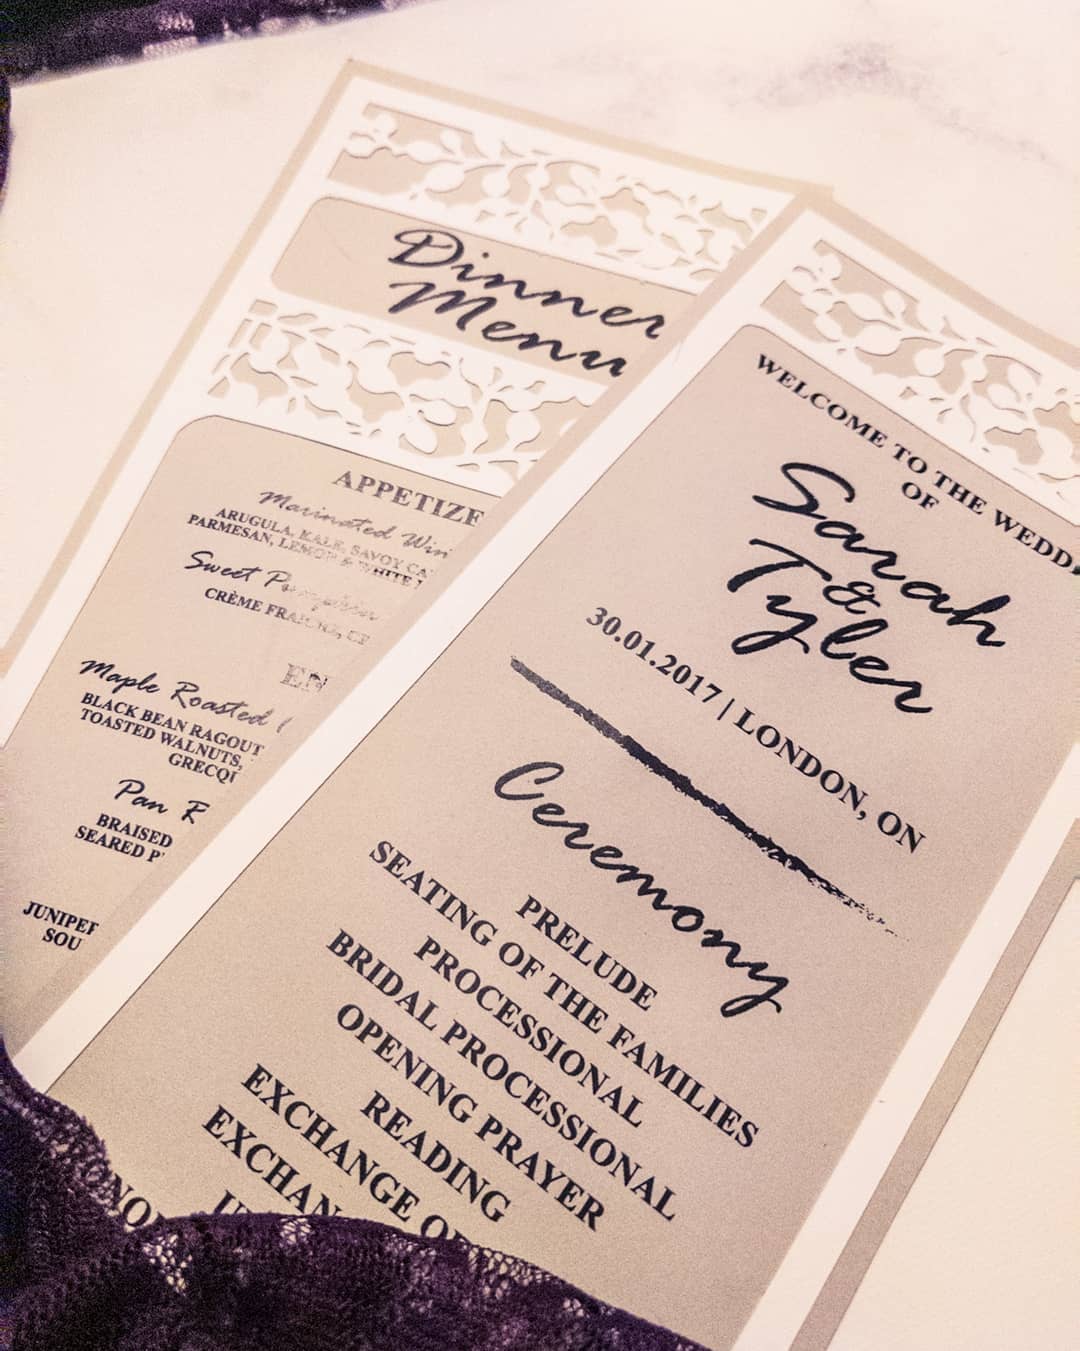 Dinner
Menu
APPETIZE
Marinated Win
ARUGULA, KALE, SAVOY CA
PARMESAN, LEMON & WHITE
Sweet Pumpkin
CRÈME FRAICHE,
EN
Maple Roasted
BLACK BEAN RAGOUT
TOASTED WALNUTS,
GRECQU
Pan R
BRAISED
SEARED P
JUNIPER
SOU
WELCOME TO THE WEDD
OF
Sarah
&
Tyler
30.01.2017 | LONDON, ON
Ceremony
PRELUDE
SEATING OF THE FAMILIES
PROCESSIONAL
BRIDAL PROCESSIONAL
OPENING PRAYER
READING
EXCHANGE O
EXCHAN